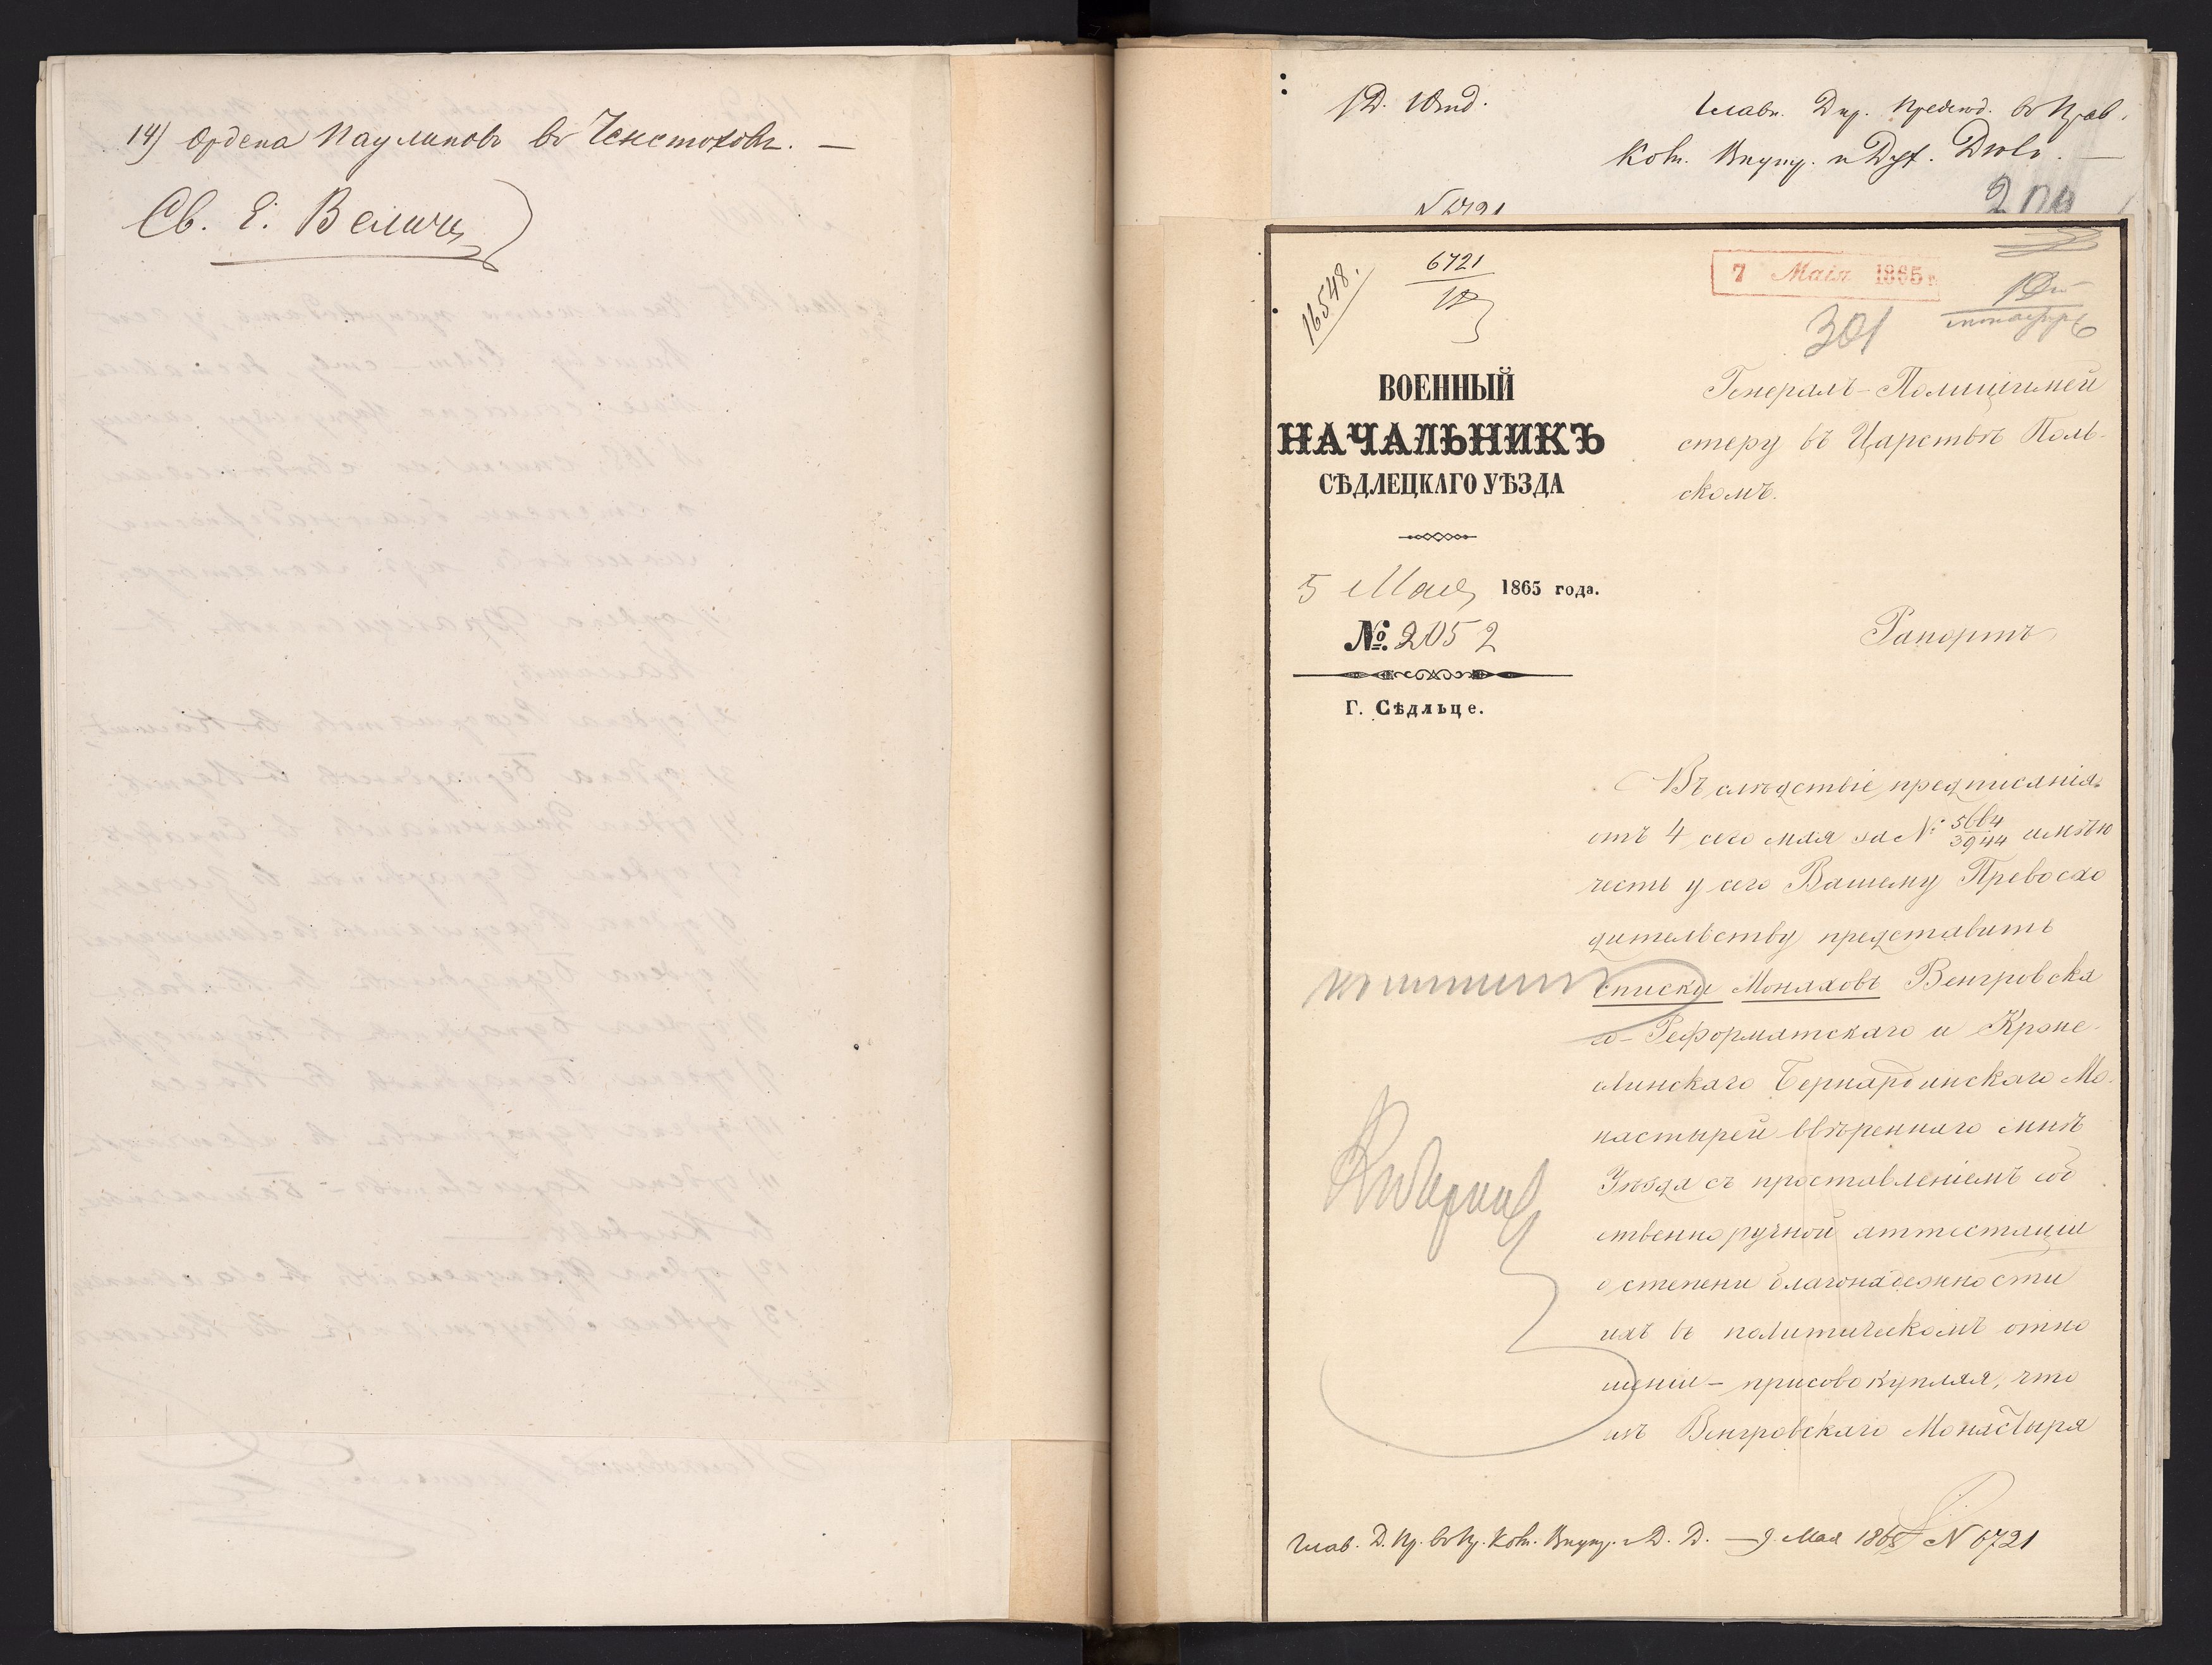 14) Ордена Паулиновъ въ Ченстоховѣ. —
Св. Е. Величк
1D. Отд.
Главн. Дир. Предсѣд. въ Прав.
Ком. Внутр. и Дух. Дѣлъ. —
N 6721
16548.
6721
7 Маія 1865 г.
301
ВОЕННЫЙ
НАЧАЛЬНИКЪ
СѢДЛЕЦКАГО УѢЗДА
5 Мая 1865 года.
№. 2052
Г. Сѣдльце.
Генералъ-Полиціймей
стеру въ Царствѣ Поль-
скомъ.
Рапортъ
Въ слѣдствіе предписанія
отъ 4 сего мая за № 5664/3944 имѣю
честь у сего Вашему Превосхо
дительству представить
списки Монаховъ Венгровска
го-Реформатскаго и Крэпе-
линскаго Бернардинскаго Мо-
настырей ввѣреннаго мнѣ
Уѣзда съ проставленіемъ соб
ственноручной аттестаціи
о степени благонадежности
ихъ въ политическомъ отно
шеніи – присовокупляя, что
изъ Венгровскаго Монастыря
Глав. Д. Пр. въ Пр. Ком. Внутр. и Д. Д. — 9. Мая 1865 N 6721